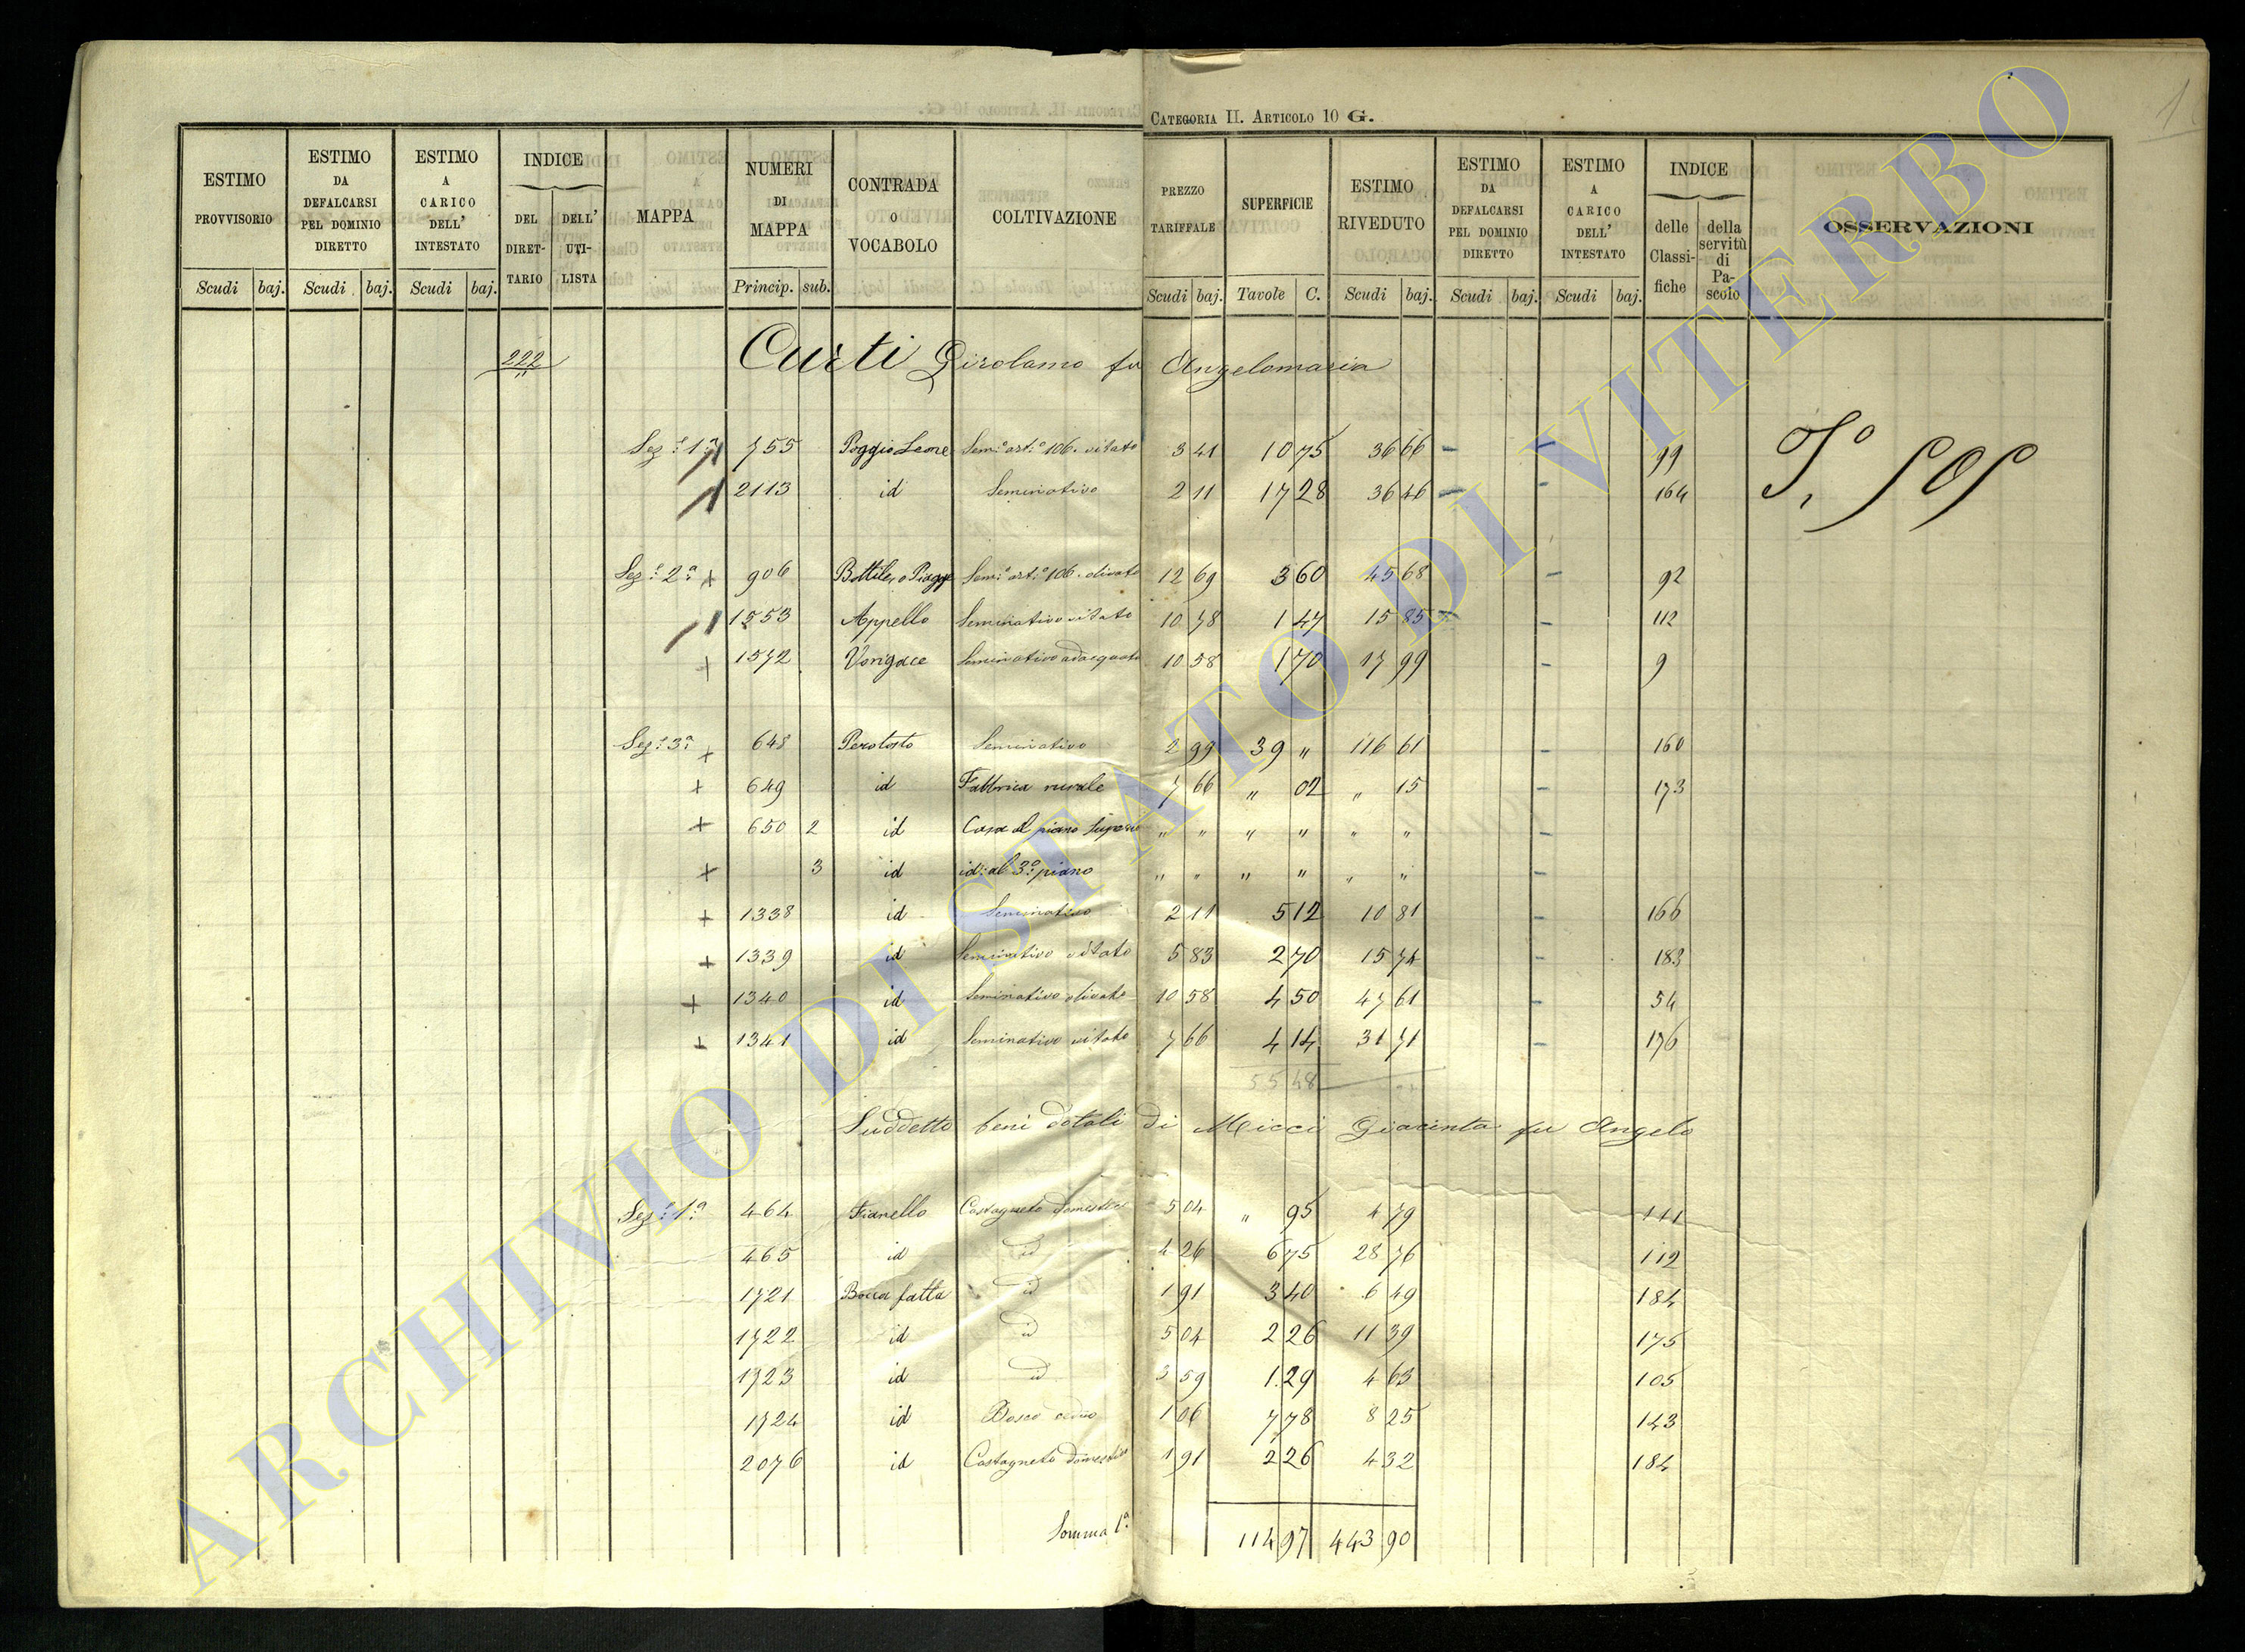 CATEGORIA II. ARTICOLO 10 G.
1
ESTIMO PROVVISORIO Scudi baj.
ESTIMO DA DEFALCARSI PEL DOMINIO DIRETTO Scudi baj.
ESTIMO A CARICO DELL' INTESTATO Scudi baj.
INDICE DEL DIRETTARIO DELL' UTILISTA
MAPPA
NUMERI DI MAPPA Princip. sub.
CONTRADA O VOCABOLO
COLTIVAZIONE
PREZZO TARIFFALE Scudi baj.
SUPERFICIE Tavole C.
ESTIMO RIVEDUTO Scudi baj.
ESTIMO DA DEFALCARSI PEL DOMINIO DIRETTO Scudi baj.
ESTIMO A CARICO DELL' INTESTATO Scudi baj.
INDICE delle Classifiche della servitù di Pascolo
OSSERVAZIONI
222 Curti Girolamo fu Angelomaria
Sez.e 1.a 755 Poggio Leone Sem.o art.o 106. vitato 3 41 10 75 36 66 - 99
2113 id Seminativo 2 11 17 28 36 46 - 164
Sez.e 2.a + 906 Bottile, o Piagge Sem.o art.o 106. olivato 12 69 3 60 45 68 - 92
1553 Appello Seminativo vitato 10 78 1 47 15 85 - 112
+ 1572 Vorigace Seminativo adacquato 10 58 1 70 17 99 - 9
Sez.e 3.a + 648 Perotosto Seminativo 2 99 39 " 116 61 - 160
+ 649 id Fabbrica rurale 7 66 " 02 " 15 - 173
+ 650 2 id Casa al piano Super " " " " " " -
+ 3 id id: al 3.o piano " " " " " " -
+ 1338 id Seminativo 2 11 5 12 10 81 - 166
+ 1339 id Seminativo vitato 5 83 2 70 15 74 - 183
+ 1340 id Seminativo olivato 10 58 4 50 47 61 - 54
+ 1341 id Seminativo vitato 7 66 4 14 31 71 - 176
55 48
Suddetto beni dotali di Micci Giacinta fu Angelo
Sez.e 1.a 464 Fianello Castagneto domestico 5 04 " 95 4 79 111
465 id id 4 26 6 75 28 76 112
1721 Bocca fatta id 1 91 3 40 6 49 184
1722 id id 5 04 2 26 11 39 175
1723 id id 3 59 1.29 4 63 105
1724 id Bosco ceduo 1 06 7 78 8 25 143
2076 id Castagneto domestico 1 91 2 26 4 32 184
Somma 1.a 114 97 443 90
ARCHIVIO DI STATO DI VITERBO